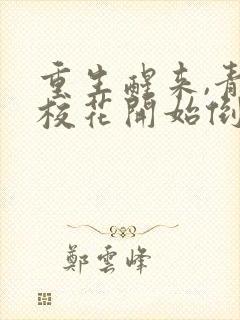 重生醒来,青
校花開始倒
鄭雲峰